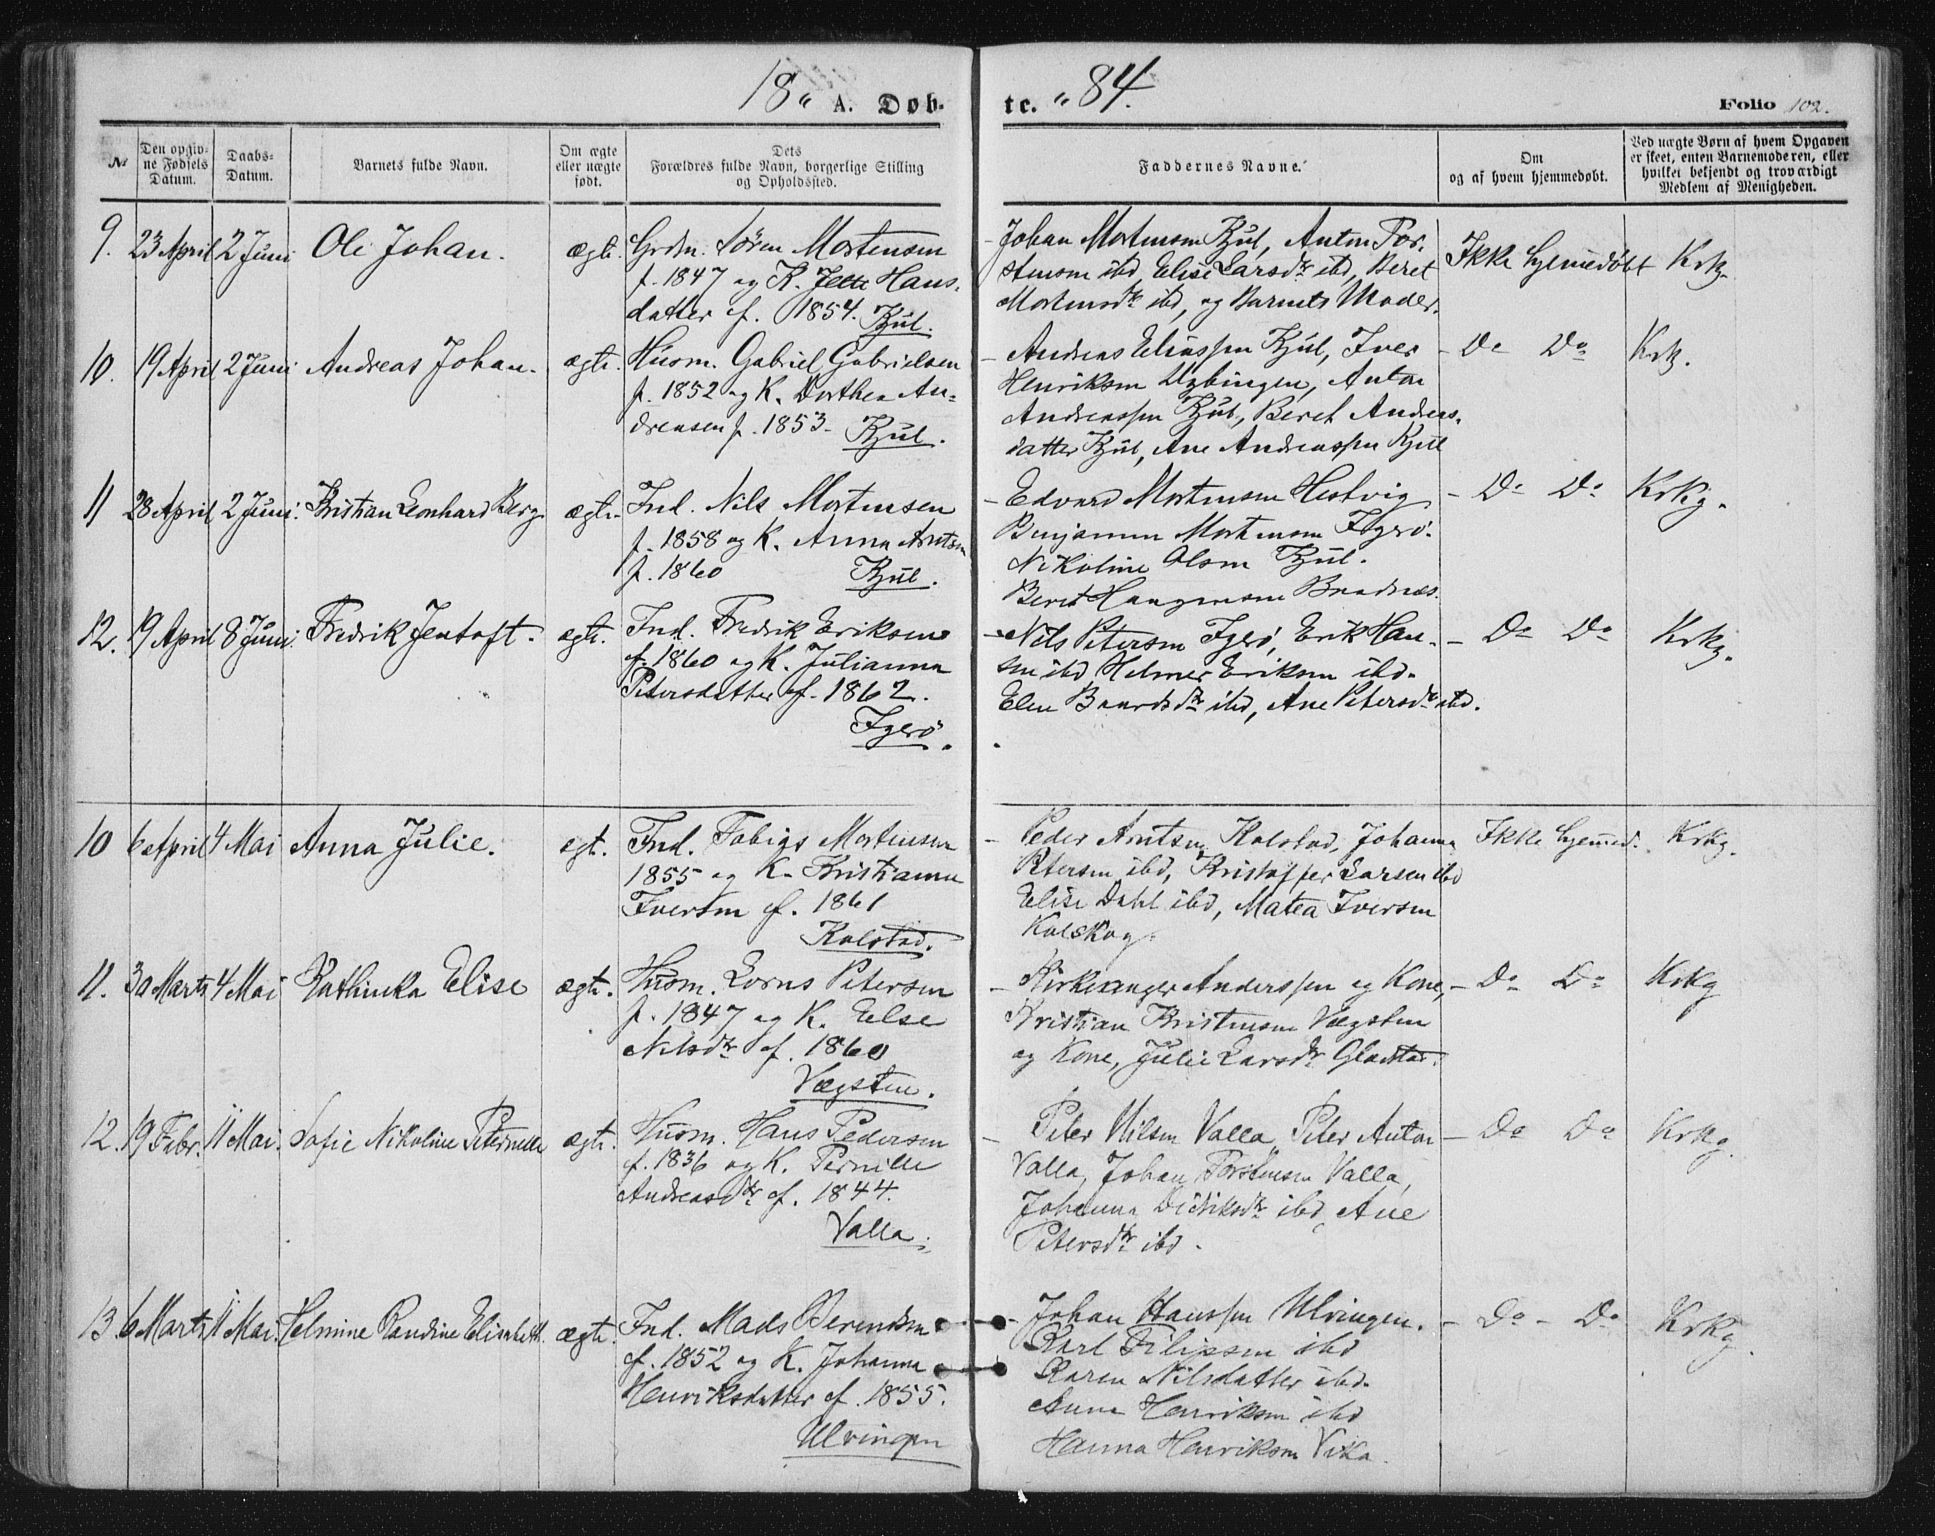 18 „ A. Døb-
te. „ 84.
Folio 102.
№
Den opgiv-
ne Fødsels
Datum.
Daabs-
Datum.
Barnets fulde Navn.
Om ægte
eller uægte
født.
Dets
Forældres fulde Navn, borgerlige Stilling
og Opholdssted.
Faddernes Navne.
Om
og af hvem hjemmedøbt.
Ved uægte Børn af hvem Opgaven
er skeet, enten Barnemoderen, eller
hvilket bekjendt og troværdigt
Medlem af Menigheden.
9. 23 April 2 Juni Ole Johan. ægte. Grdm. Søren Mortensen
f. 1847 og K. Jette Hans-
datter f. 1854. Kjul.
- Johan Mortensen Kjul, Anton Tor-
stensen ibd, Elise Larsdtr ibd, Beret
Mortensdtr ibd, og Barnets Moder.
Ikke hjemedøbt Krkg.
10. 19 April 2 Juni Andreas Johan. ægte. Husm. Gabriel Gabrielsen
f. 1852 og K. Dorthea An-
dreasen f. 1853. Kjul.
- Andreas Eliassen Kjul, Iver
Henriksen, Anton
Andreassen Kjul, Beret Andreas-
datter Kjul, Ane Andreassen Kjul
- Do Do Krkg.
11 28 April 2 Juni. Kristian Leonhard Berg ægte. Ind. Nils Mortensen
f. 1858 og K. Anna Arntsen
f. 1860 Kjul.
- Edvard Mortensen Hestvig
Benjamin Mortensen Igerø.
Nikoline Olsen Kjul.
Beret Haagensen
- Do Do Krkg.
12. 19 April 8 Juni. Fredrik Jentoft. ægte. Ind. Fredrik Eriksen
f. 1860 og K. Julianna
Petersdatter f. 1862.
Igerø.
- Nils Petersen Igerø, Erik Han-
sen ibd, Helmer Eriksen ibd.
Elen Baardsdtr ibd, Ane Petersdtr ibd.
- Do Do Krkg.
10 6 April 4 Mai Anna Julie. egt. Ind. Tobias Mortensen
1855 og K. Kristianna
Iversen f. 1861
Kolstad.
- Peder Arntsen Kolstad, Johanna
Petersen ibd, Kristoffer Larsen ibd
Elise Dahl ibd, Matea Iversen
Kalskag.
Ikke hjemed. Krkg.
11. 30 Marts 4 Mai Kathinka Elise ægte. Husm. Lorns Petersen
f. 1847 og K. Else
Nilsdtr f. 1860
Vægsten.
- Kirkesanger Anderssen og Kone,
Kristian Kristensen Vægsten
og Kone, Julie Larsdtr Gladstad.
- Do Do Krkg
12. 19 Febr. 11 Mai. Sofie Nikoline Peternelle ægte. Husm. Hans Pedersen
f. 1836 og K. Pernille
Andreasdtr f. 1844.
Valla.
- Peter Nilsen Valla, Peter Anton
Valla, Johan Torstensen Valla,
Johanna Didriksdtr ibd, Ane
Petersdtr ibd.
- Do Do Krkg.
13. 6 Marts 11 Mai. Helmine Randine Elisabeth. ægte. Ind. Mads Berendsen
f. 1852 og K. Johanna
Henriksdatter f. 1855.
Ulvingen
- Johan Hanssen Ulvingen.
Karl Filipsen ibd
Karen Nilsdatter ibd.
Anne Henriksen ibd
Hanna Henriksen Vika.
- Do - Do Krkg.